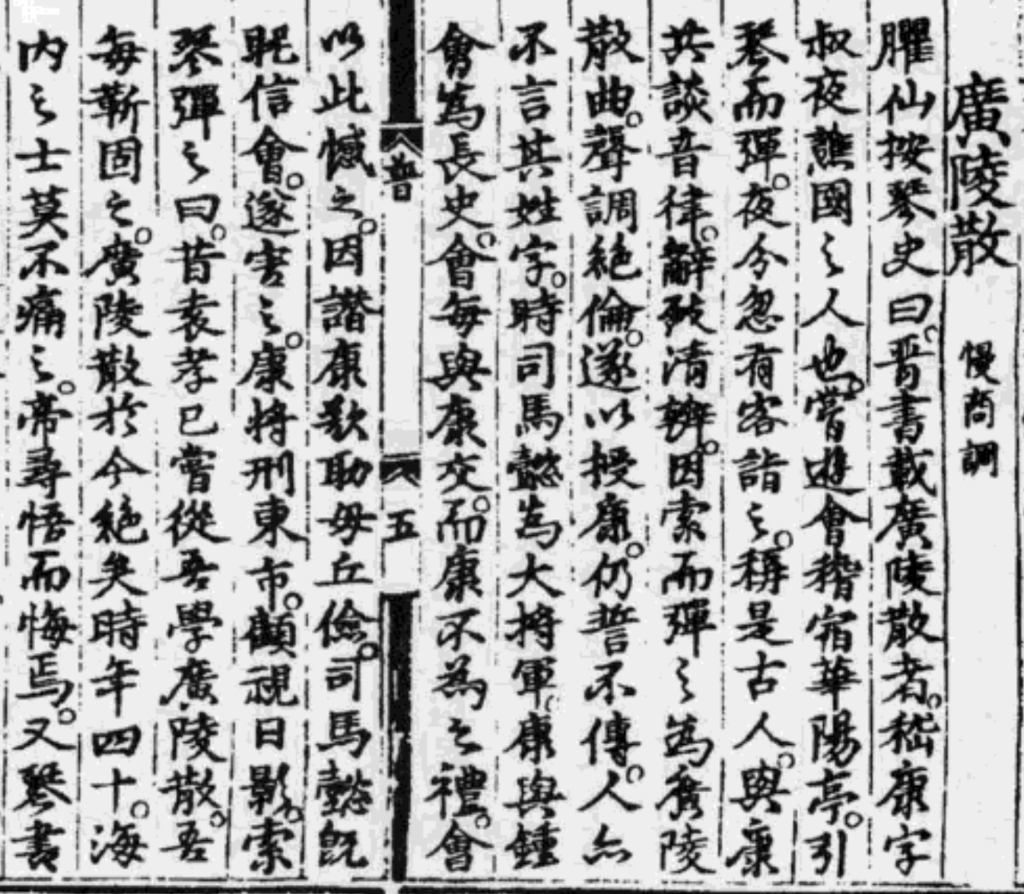 廣陵散 慢商調
臞仙按琴史曰。晉書載廣陵散者。嵇康字
叔夜譙國之人也。嘗遊會稽宿華陽亭。引
琴而彈。夜分忽有客詣之。稱是古人。與康
共談音律。辭致清辨。因索而彈之為廣陵
散曲。聲調絕倫。遂以授康。仍誓不傳。人亦
不言其姓字。時司馬懿為大將軍。康與鍾
會為長史。會每與康交。而康不為之禮。會
普 五
以此憾之。因譖康欲助毋丘儉。司馬懿既
昵信會。遂害之。康將刑東市。顧視日影。索
琴彈之曰。昔袁孝已嘗從吾學廣陵散。吾
每靳固之。廣陵散於今絕矣時年四十。海
内之士莫不痛之。帝尋悟而悔焉。又琴書